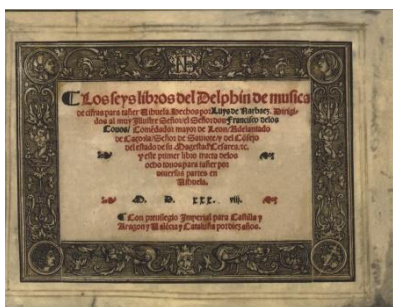 Los seys libros del Delphin de musica
de cifras para tañer Vihuela. Hechos por Luys de Narbaez. Dirigi-
dos al muy Illustre Señor / el Señor don Francisco delos
Couos / Comẽdador mayor de Leon / Adelantado
de Caçorla / Señor de Sauiote / y del Cõsejo
del estado de su Magestad Cesarea. ꝛc.
y este primer libro tracta delos
ocho tonos para tañer por
diuersas partes en
Vihuela.
M. D. XXX. viij.
Con preuilegio Imperial para Castilla y
Aragon y Valẽcia y Cataluña por diez años.